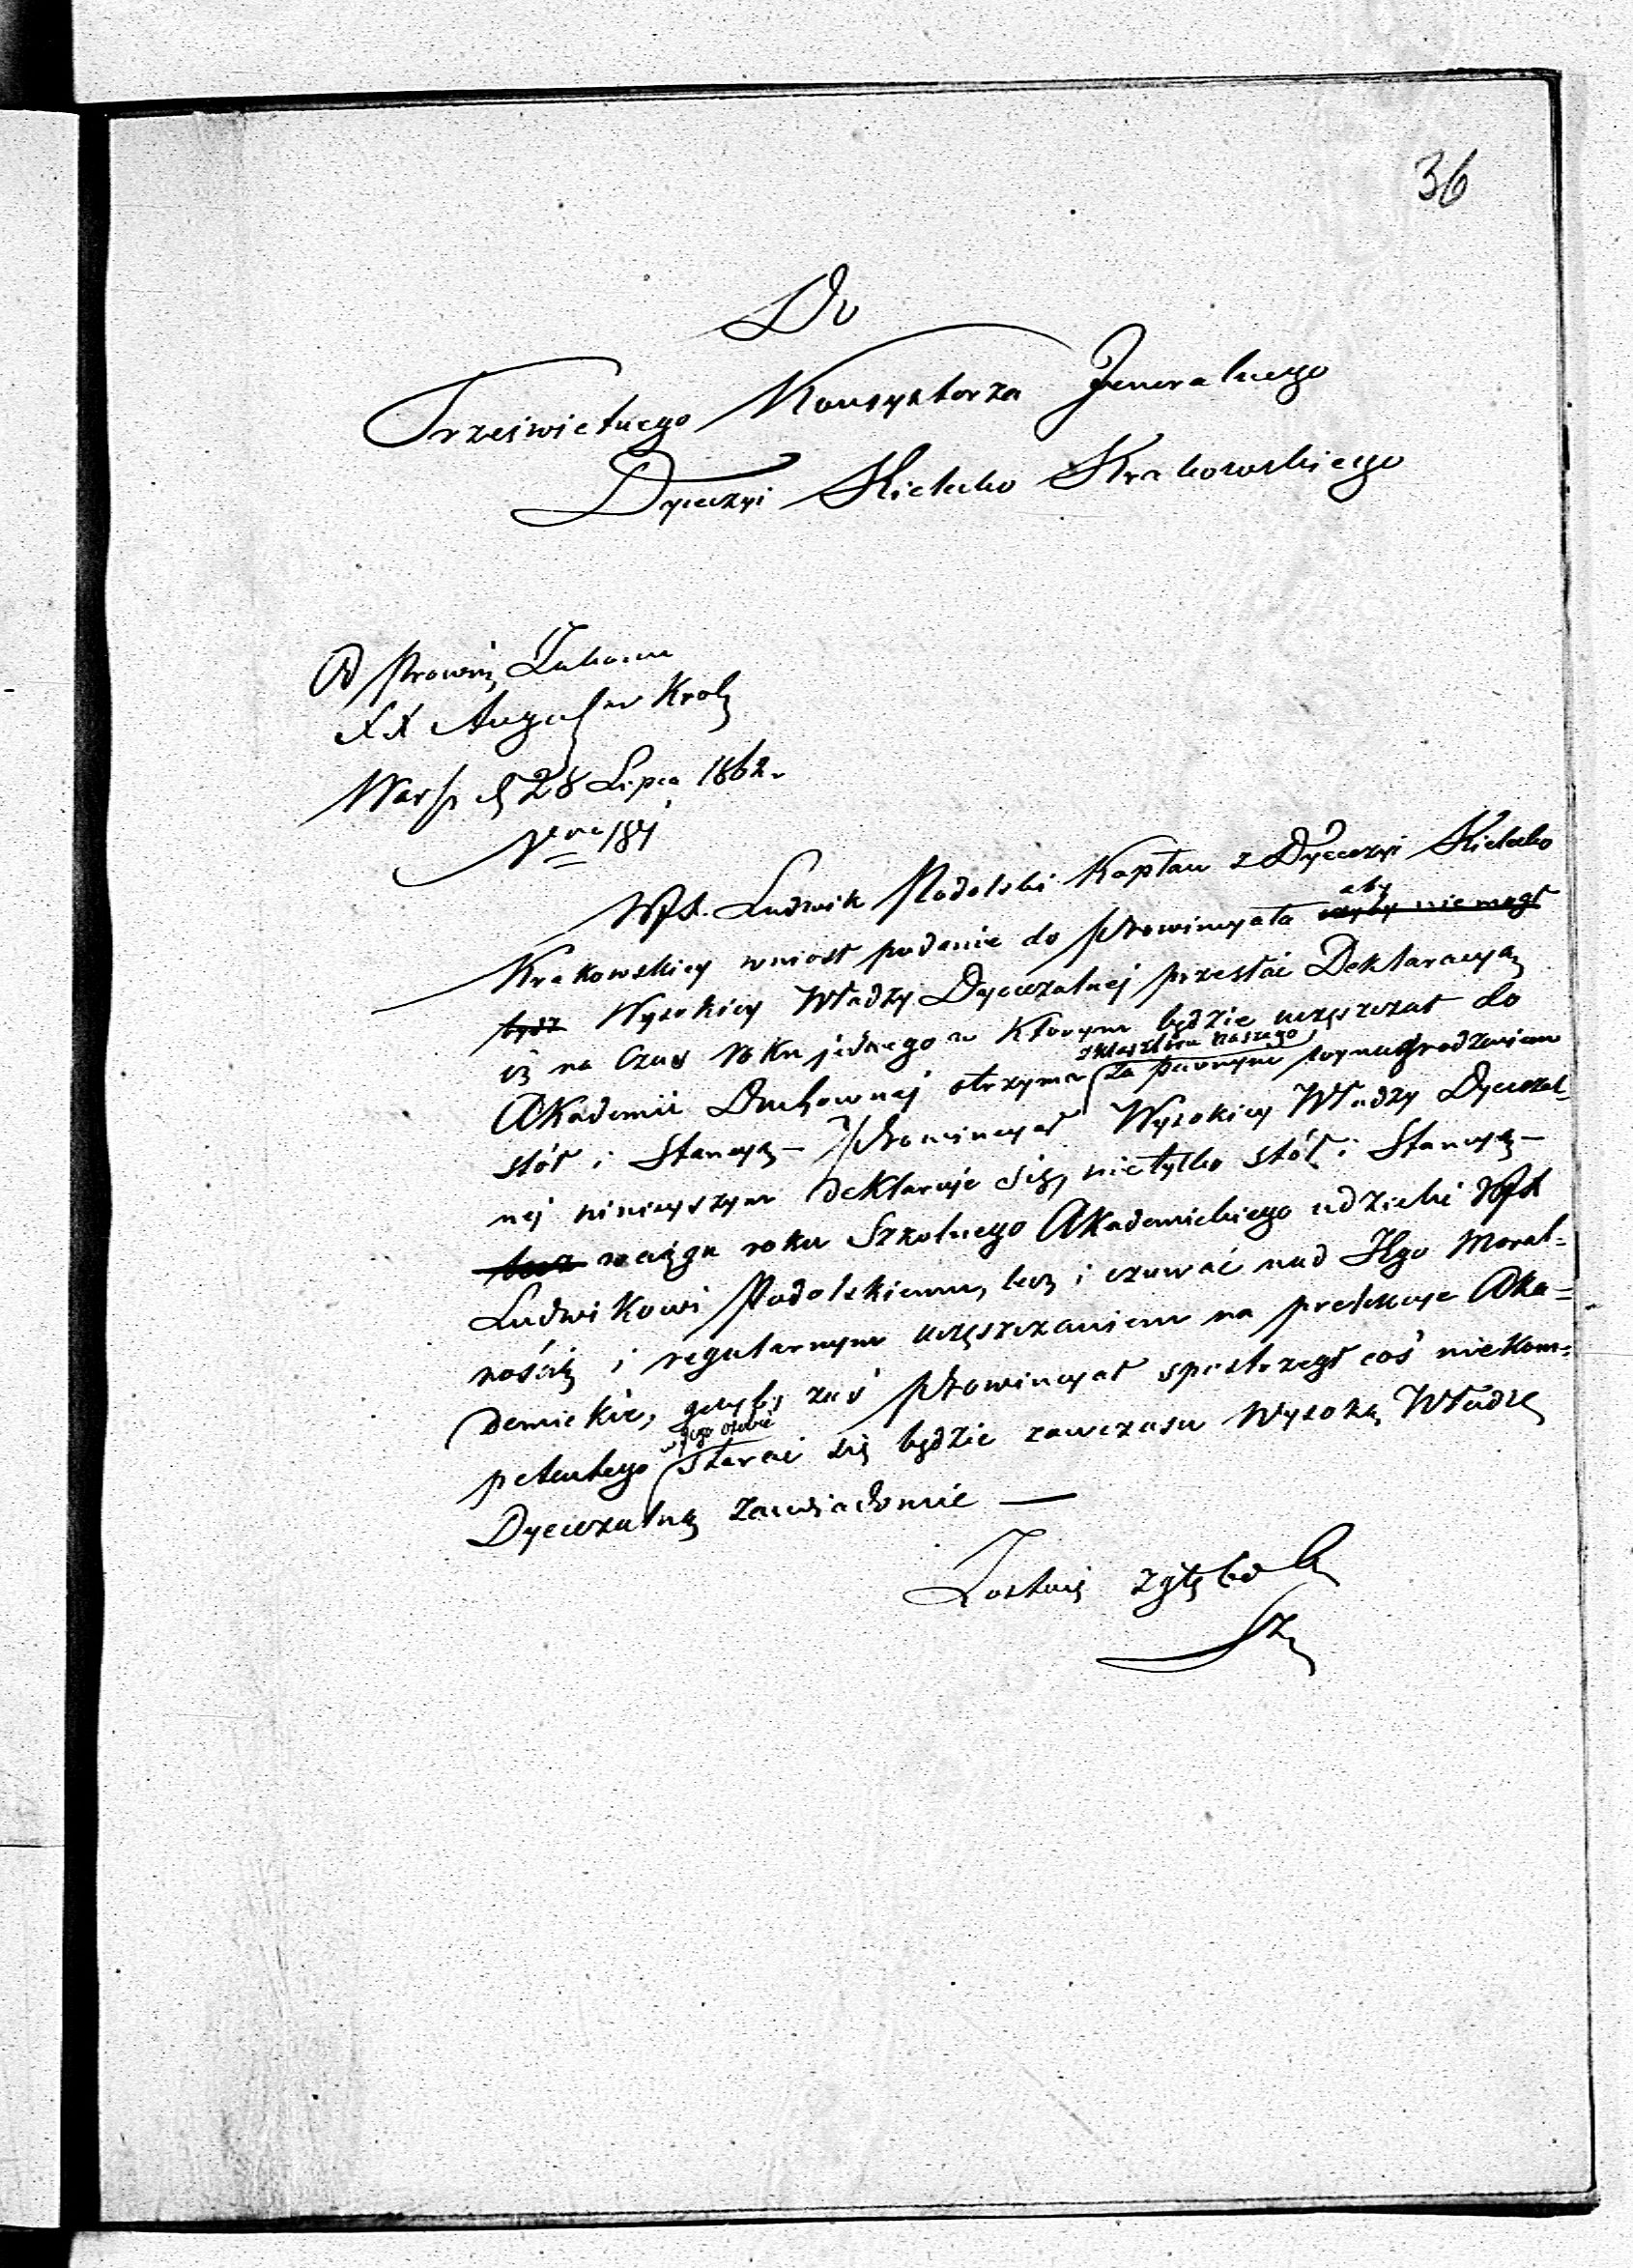 36
Do
Prześwietnego Konsystorza Jeneralnego
Dyecezyi Kielecko Krakowskiego
Od Prowin Zakonu
XX August w Krol
Warsz d 28 Lipca 1862.
Nro 184
WJX. Ludwik Podolski Kapłan z Dyecezyi Kielecko
aby
Krakowskiey wniosł podanie do Prowincyała czyby nie mogł
bydź Wysokiey Władzy Dyecezalnej przesłać Deklaracyą
iż na czas roku jednego w którym będzie uczęszczał do
z Klasztoru naszego
Akademii Duchownej otrzyma za pewnym wynagrodzeniem
stół i Stancyą – Prowincyał Wysokiey Władzy Dyecezal-
nej niniejszym deklaruje się, nietylko stół i Stancyą –
lecz w ciągu roku Szkolnego Akademickiego udzielić WJX
Ludwikowi Podolskiemu, lecz i czuwać nad Jego Moral-
nością i regularnym uczęszczaniem na prelekcye Aka-
demickie, gdyby zaś Prowincyał spostrzegł coś niekom-
w jego osobie
petentego starać się będzie zawczasu Wysoką Władzę
Dyecezalną zawiadomić —
Zostaję z głębo